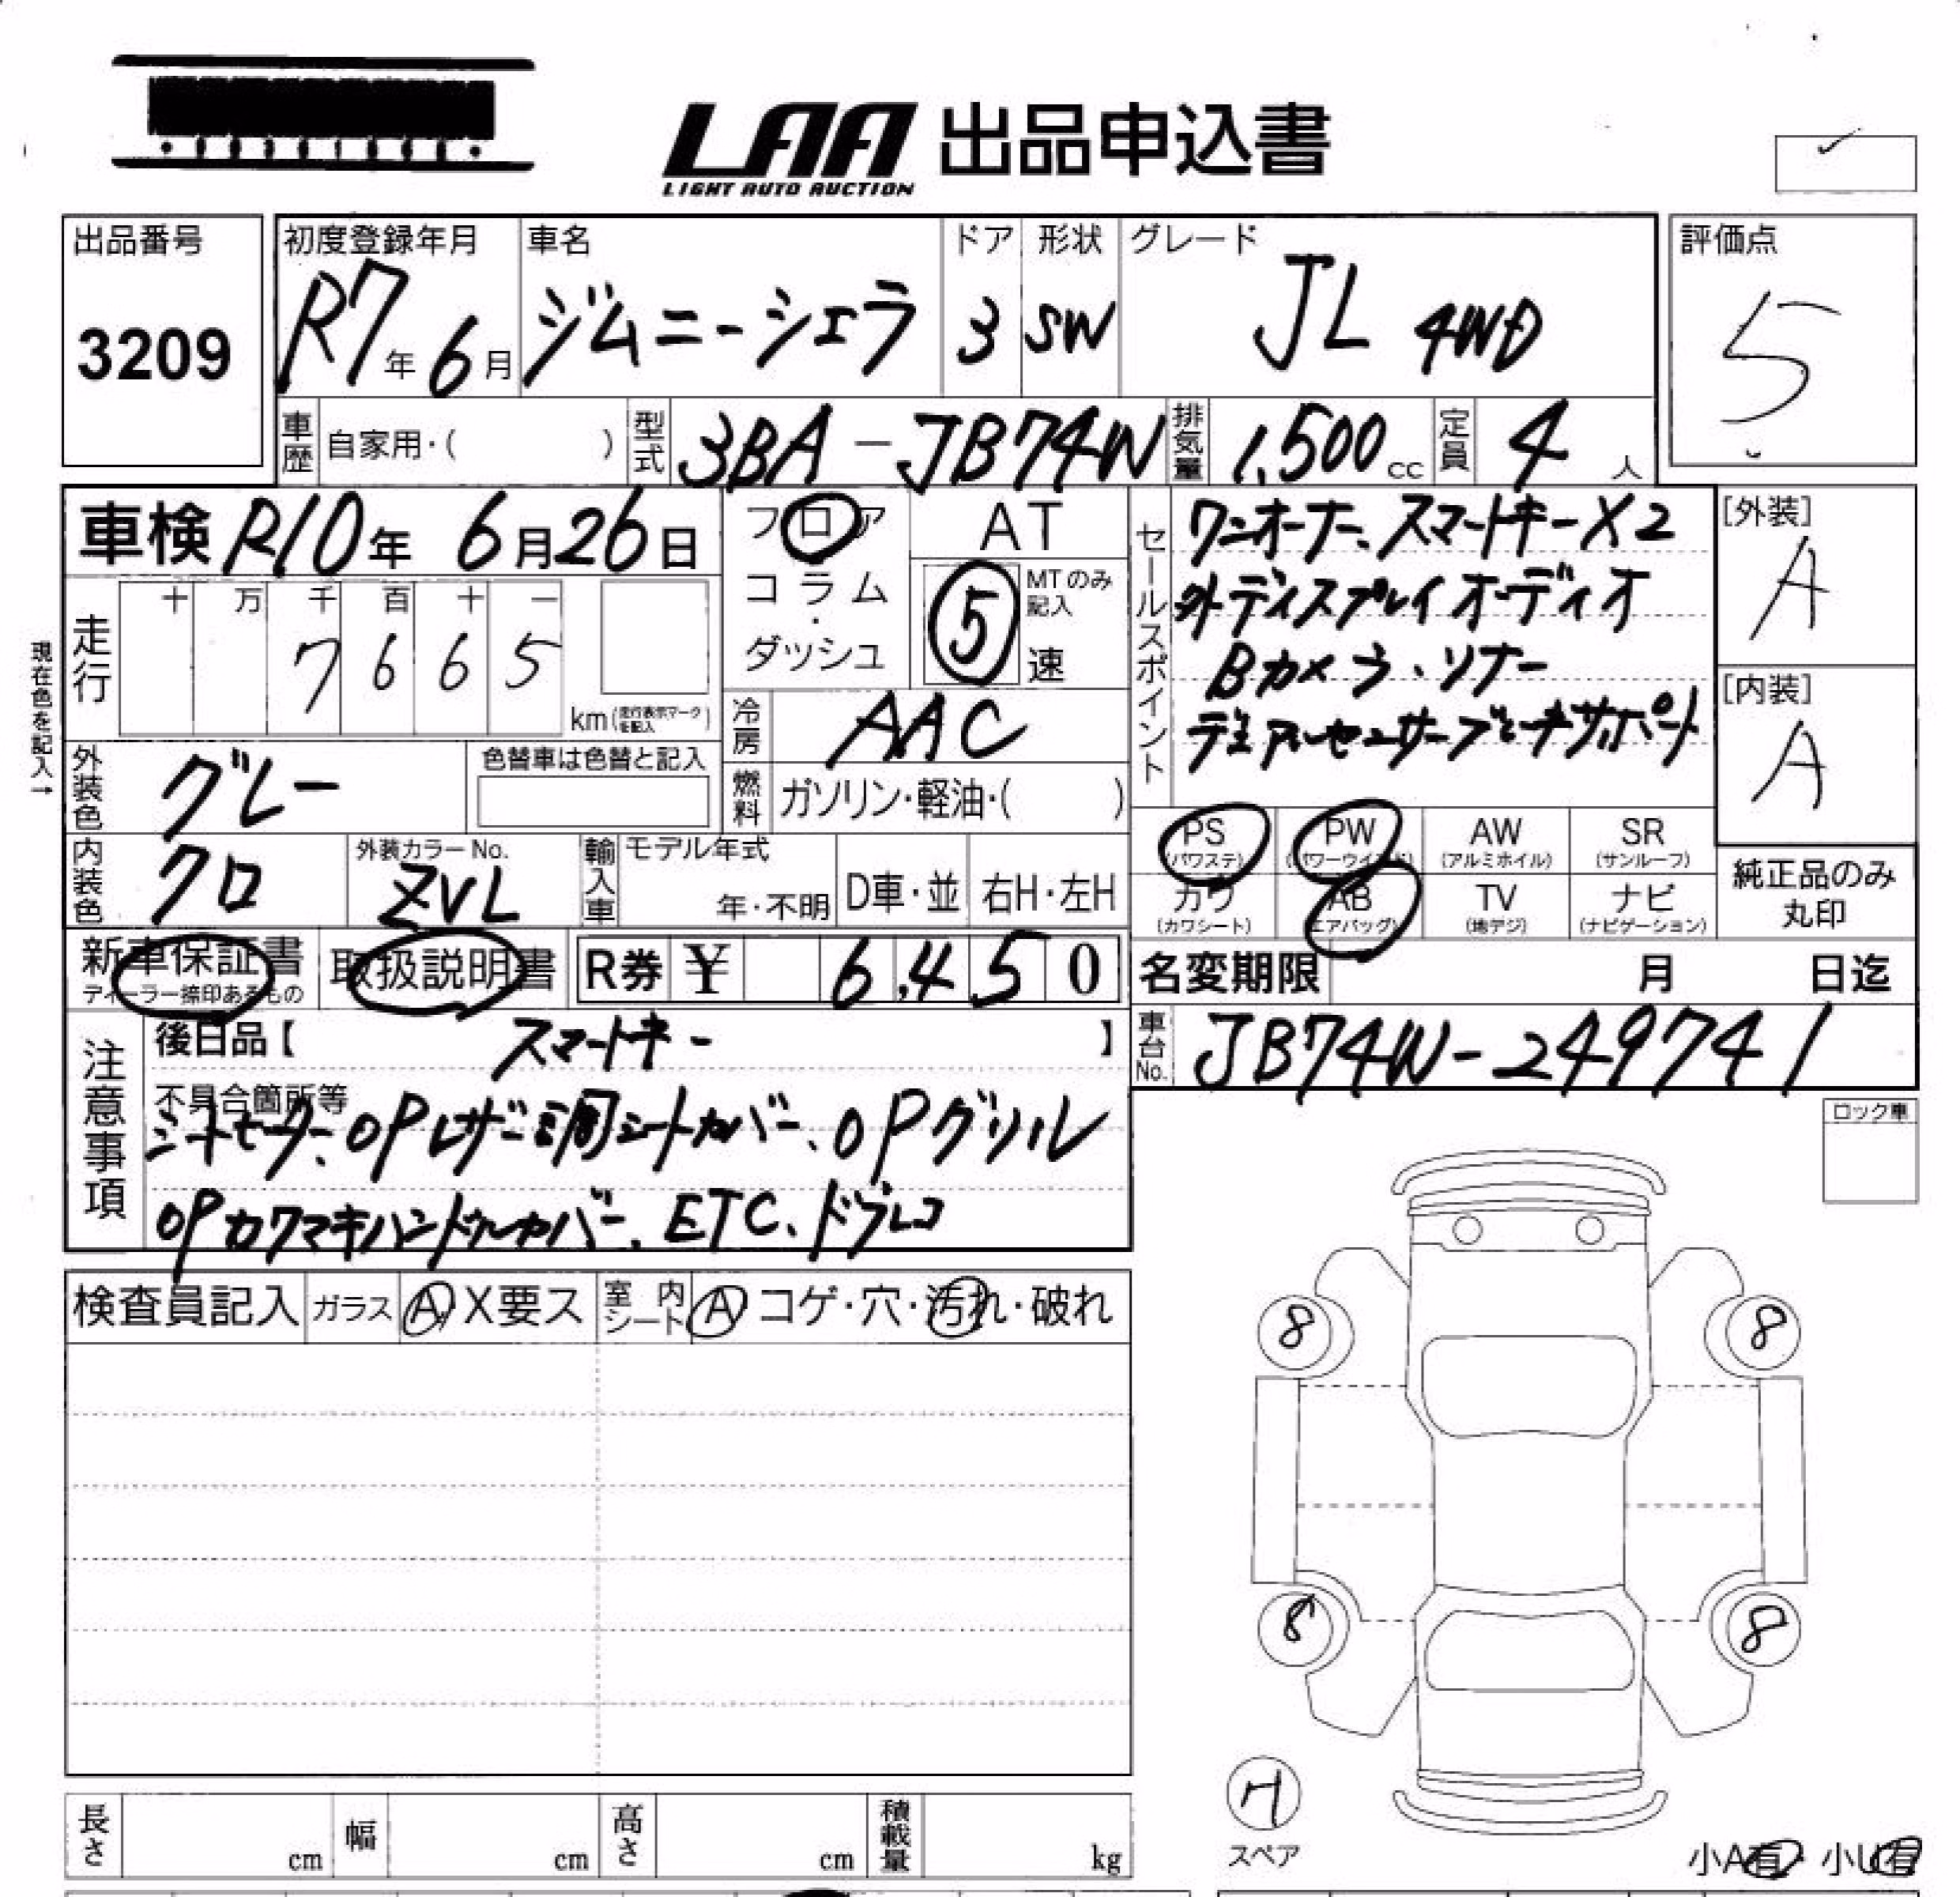 LAA 出品申込書
LIGHT AUTO AUCTION
出品番号
3209
初度登録年月
R7年6月
車名
ジムニーシエラ
ドア
3
形状
SW
グレード
JL 4WD
評価点
5
車歴 自家用・( )
型式 3BA-JB74W
排気量 1,500cc
定員 4人
車検 R10年 6月26日
走行 十 万 千 百 十 一
7665
km(走行表示マークを記入)
現在色を記入→
外装色 グレー
色替車は色替と記入
内装色 クロ
外装カラーNo.
ZVL
フロア
コラム
・
ダッシュ
AT
5 MTのみ記入
速
冷房 AAC
燃料 ガソリン・軽油・( )
輸入車 モデル年式
年・不明 D車・並 右H・左H
セールスポイント
ワンオーナー、スマートキーX2
外ディスプレイオーディオ
Bカメラ、ソナー
デュアルセンサーブレーキサポート
[外装]
A
[内装]
A
PS (パワステ)
PW (パワーウインド)
AW (アルミホイル)
SR (サンルーフ)
カワ (カワシート)
AB (エアバッグ)
TV (地デジ)
ナビ (ナビゲーション)
純正品のみ
丸印
新車保証書
ディーラー捺印あるもの
取扱説明書
R券 ¥ 6,450
名変期限 月 日迄
車台No. JB74W-249741
注意事項
後日品【 スマートキー 】
不具合箇所等
シートヒーター、OPレザー調シートカバー、OPグリル
OPカワマキハンドルカバー、ETC、ドラレコ
ロック車
検査員記入 ガラス A X要ス 室内シート A コゲ・穴・汚れ・破れ
8 8
8 8
スペア
小A有・小U有
長さ cm 幅 cm 高さ cm 積載量 kg